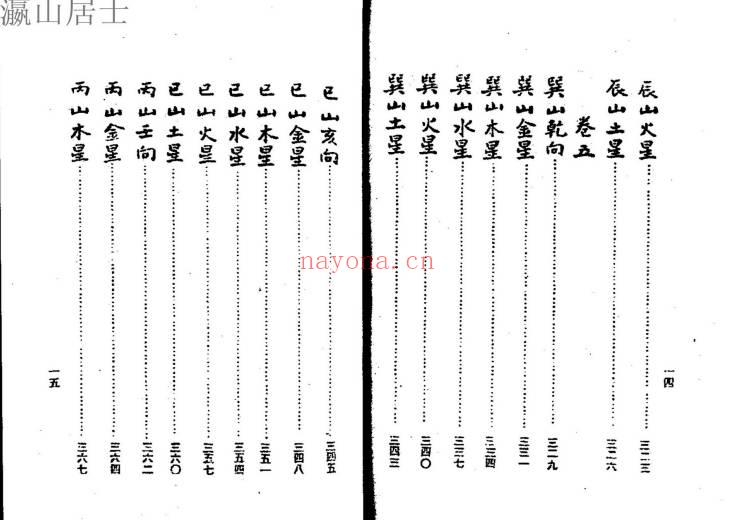 瀛山居士
辰山火星 三二三
辰山土星 三二六
卷五
巽山乾向 三二九
巽山金星 三三一
巽山木星 三三四
巽山水星 三三七
巽山火星 三四〇
巽山土星 三四三
一四
巳山亥向 三四五
巳山金星 三四八
巳山木星 三五一
巳山水星 三五四
巳山火星 三五七
巳山土星 三六〇
丙山壬向 三六二
丙山金星 三六四
丙山木星 三六七
一五
nayona.cn